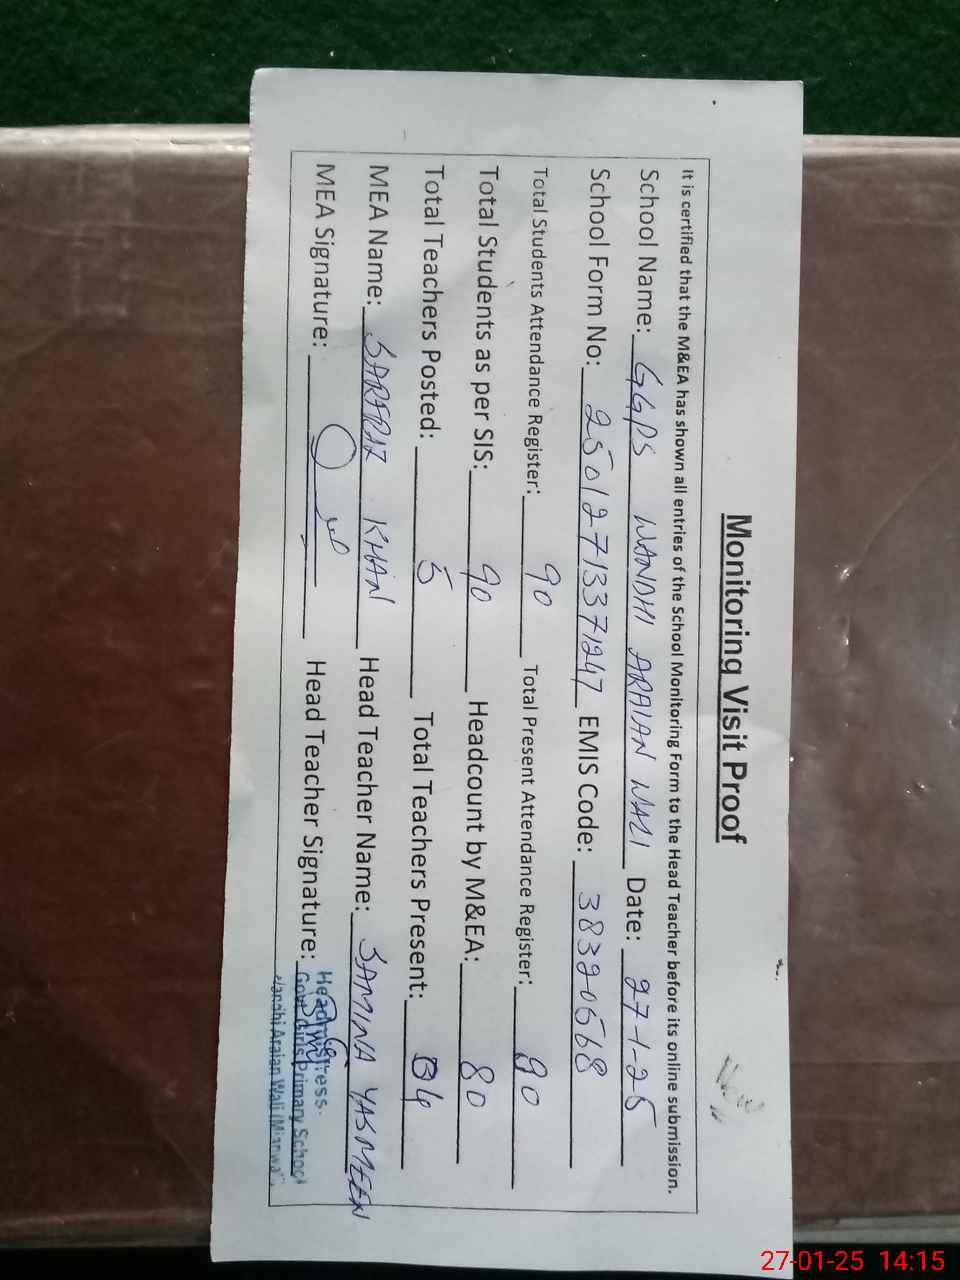 Monitoring Visit Proof
It is certified that the M&EA has shown all entries of the School Monitoring Form to the Head Teacher before its online submission.
School Name: GGPS WANDHI ARAIAN WALI Date: 27-1-25
School Form No: 25012713371247 EMIS Code: 38320568
Total Students Attendance Register: 90 Total Present Attendance Register: 80
Total Students as per SIS: 90 Headcount by M&EA: 80
Total Teachers Posted: 5 Total Teachers Present: 04
MEA Name: SARFRAZ KHAN Head Teacher Name: SAMINA YASMEEN
MEA Signature: Head Teacher Signature:
Headmistress
Govt Girls Primary School
Wandhi Araian Wali (Mianwali)
27-01-25 14:15